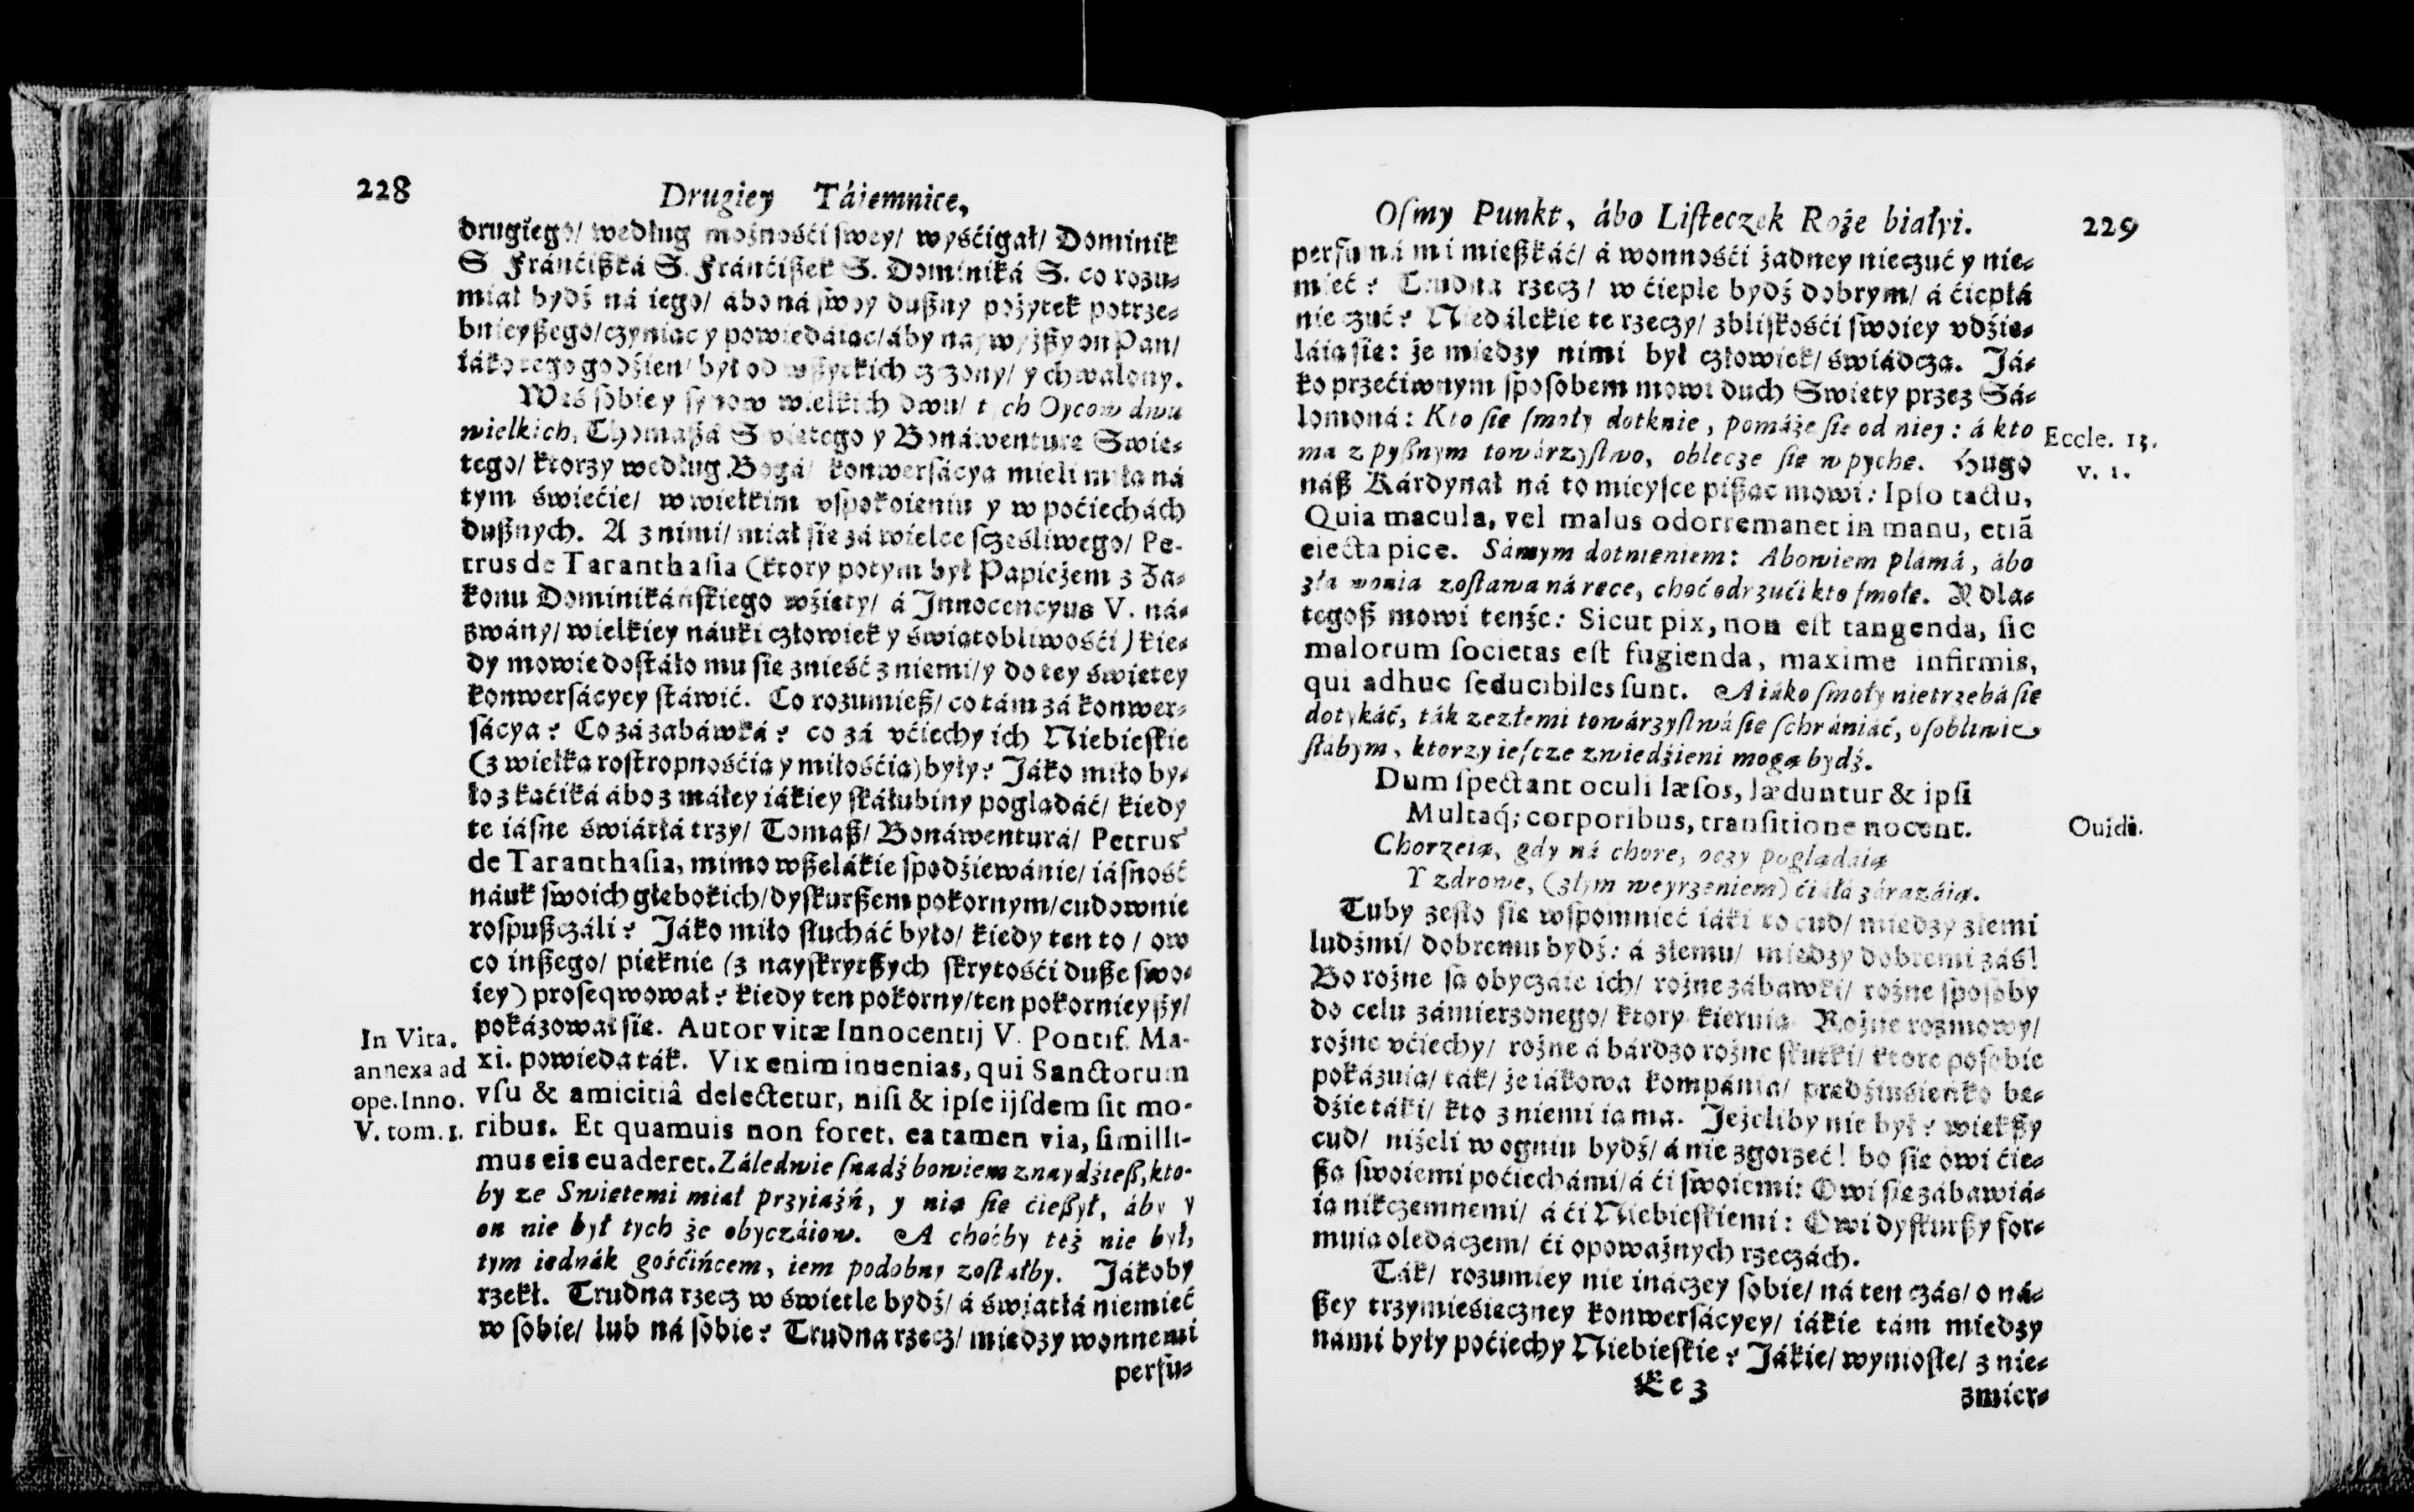 228
Drugiey Táiemnice,
drugiego/ według możnośći ſwey/ wyśćigał/ Dominik
S. Fránćißká S. Fránćißek S. Dominiká S. co rozu-
miał bydź ná iego/ ábo ná ſwoy dußny pożytek potrze-
bnieyßego/ czyniąc y powiedáiąc/ áby naywyżßy on Pan/
iáko tego godźien/ był od wßyſtkich czczony/ y chwalony.
Weś ſobie y ſynow wielkich dwu/ tych Oycow dwu
wielkich, Thomaßá Swiętego y Bonáwenturę Swię-
tego/ ktorzy według Bogá/ konwerſácyą mieli miłą ná
tym świećie/ w wielkim vſpokoieniu y w poćiechách
dußnych. A z nimi/ miał ſię zá wielce ſczęśliwego/ Pe-
trus de Taranthaſia (ktory potym był Papieżem z Za-
konu Dominikáńſkiego wźięty/ á Innocencyus V. ná-
zwány/ wielkiey náuki człowiek y świątobliwośći) kie-
dy mowię doſtáło mu ſię znieść z niemi/ y do tey świętey
konwerſácyey ſtáwić. Co rozumieß/ co tám zá konwer-
ſácya? Co zá zabáwká? co zá vćiechy ich Niebieſkie
(z wielką roſtropnośćią y miłośćią) były? Jáko miło by-
ło z kąćiká ábo z máłey iákiey ſkáłubiny poglądáć/ kiedy
te iáſne świátłá trzy/ Tomaß/ Bonáwenturá/ Petrus
de Taranthaſia, mimo wßelákie ſpodźiewánie/ iáſność
náuk ſwoich głębokich/ dyſkurßem pokornym/ cudownie
roſpußczáli? Jáko miło ſłucháć było/ kiedy ten to/ ow
co inßego/ pięknie (z nayſkrytßych ſkrytośći duße ſwo-
iey) proſeqwował? kiedy ten pokorny/ ten pokornieyßy/
pokázował ſię. Autor vitæ Innocentij V. Pontif. Ma-
xi. powieda ták. Vix enim inuenias, qui Sanctorum
vſu & amicitiâ delectetur, niſi & ipſe ijſdem ſit mo-
ribus. Et quamuis non foret, ea tamen via, ſimilli-
mus eis euaderet. Záledwie ſnadź bowiem znaydźieß, kto-
by ze Swiętemi miał przyiaźń, y nią ſię ćießył, áby y
on nie był tych że obyczáiow. A choćby też nie był,
tym iednák gośćińcem, iem podobny zoſtałby. Jákoby
rzekł. Trudna rzecz w świetle bydź/ á świátłá niemieć
w ſobie/ lub ná ſobie? Trudna rzecz/ między wonnemi
perfu-
In Vita.
annexa ad
ope. Inno.
V. tom. 1.
Oſmy Punkt, ábo Liſteczek Roże białyi.
229
perfumámi mießkáć/ á wonnośći żadney nieczuć y nie-
mieć? Trudna rzecz/ w ćieple bydź dobrym/ á ćiepłá
nie czuć? Niedálekie te rzeczy/ z bliſkośći ſwoiey vdźie-
láią ſię: że między nimi był człowiek/ świádczą. Já-
ko przećiwnym ſpoſobem mowi duch Swięty przez Sá-
lomoná: Kto ſię ſmoły dotknie, pomáże ſię od niey: á kto
ma z pyßnym towárzyſtwo, oblecze ſię w pychę. Hugo
náß Kárdynał ná to mieyſce pißąc mowi: Ipſo tactu,
Quia macula, vel malus odor remanet in manu, etiã
eiecta pice. Sámym dotnieniem: Abowiem plámá, ábo
zła wonia zoſtawa ná ręce, choć odrzući kto ſmołę. A dla-
tegoß mowi tenże: Sicut pix, non eſt tangenda, ſic
malorum ſocietas eſt fugienda, maxime infirmis,
qui adhuc ſeducibiles ſunt. A iáko ſmoły nietrzebá ſię
dotykáć, ták ze złemi towárzyſtwá ſię ſchrániáć, oſobliwie
ſłábym, ktorzy ieſcze zwiedźieni mogą bydź.
Dum ſpectant oculi læſos, læduntur & ipſi
Multaq́; corporibus, tranſitione nocent.
Chorzeią, gdy ná chore, oczy poglądáią
Y zdrowe, (złym weyrzeniem) ćiáłá zárazáią.
Tuby zeſło ſię wſpomnieć iáki to cud/ między złemi
ludźmi/ dobremu bydź: á złemu/ między dobremi zás!
Bo rożne ſą obyczáie ich/ rożne zábawki/ rożne ſpoſoby
do celu zámierzonego/ ktory kieruią. Rożne rozmowy/
rożne vćiechy/ rożne á bárdzo rożne ſkutki/ ktore po ſobie
pokázuią/ ták/ że iákowa kompánia/ prędźiuśieńko bę-
dźie táki/ kto z niemi ią ma. Jeżeliby nie był? więkßy
cud/ niżeli w ogniu bydź/ á nie zgorzeć! bo ſię owi ćie-
ßą ſwoiemi poćiechámi/ á ći ſwoiemi: Owi ſię zábawiá-
ią nikczemnemi/ á ći Niebieſkiemi: Owi dyſkurßy for-
muią oledáczem/ ći o poważnych rzeczách.
Ták/ rozumiey nie ináczey ſobie/ ná ten czás/ o ná-
ßey trzymieśięczney konwerſácyey/ iákie tám między
námi były poćiechy Niebieſkie? Jákie/ wynioſłe/ z nie-
Ee 3
zmier-
Eccle. 13.
v. 1.
Ouidi.